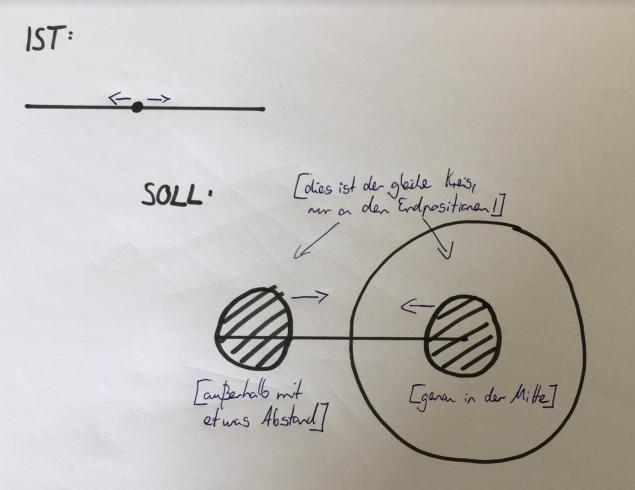 IST:
SOLL:
[dies ist der gleiche Kreis,
nur an den Endpositionen!]
[außerhalb mit
etwas Abstand]
[genau in der Mitte]